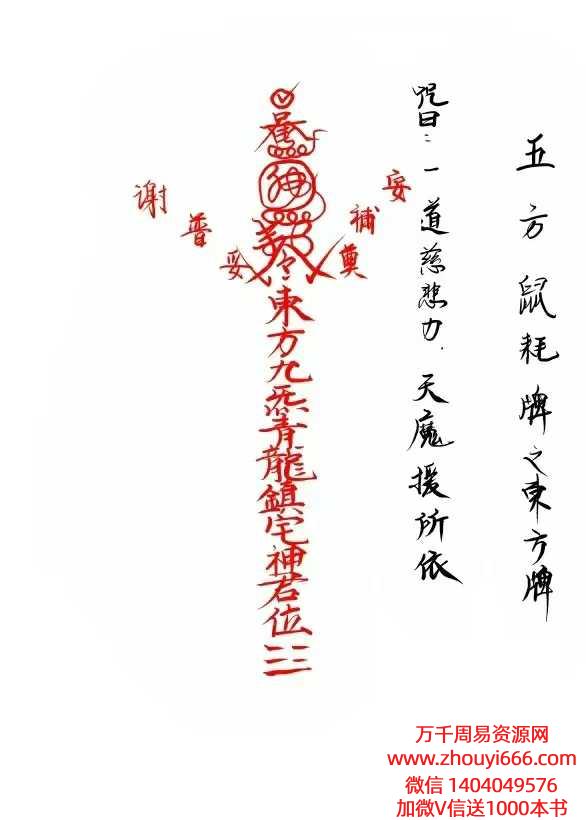 五方鼠耗牌之東方牌
咒曰：一道慈悲力．天魔援所依
安補奠
東方九炁青龍鎮宅神君位
妥普谢
万千周易资源网
www.zhouyi666.com
微信 1404049576
加微V信送1000本书